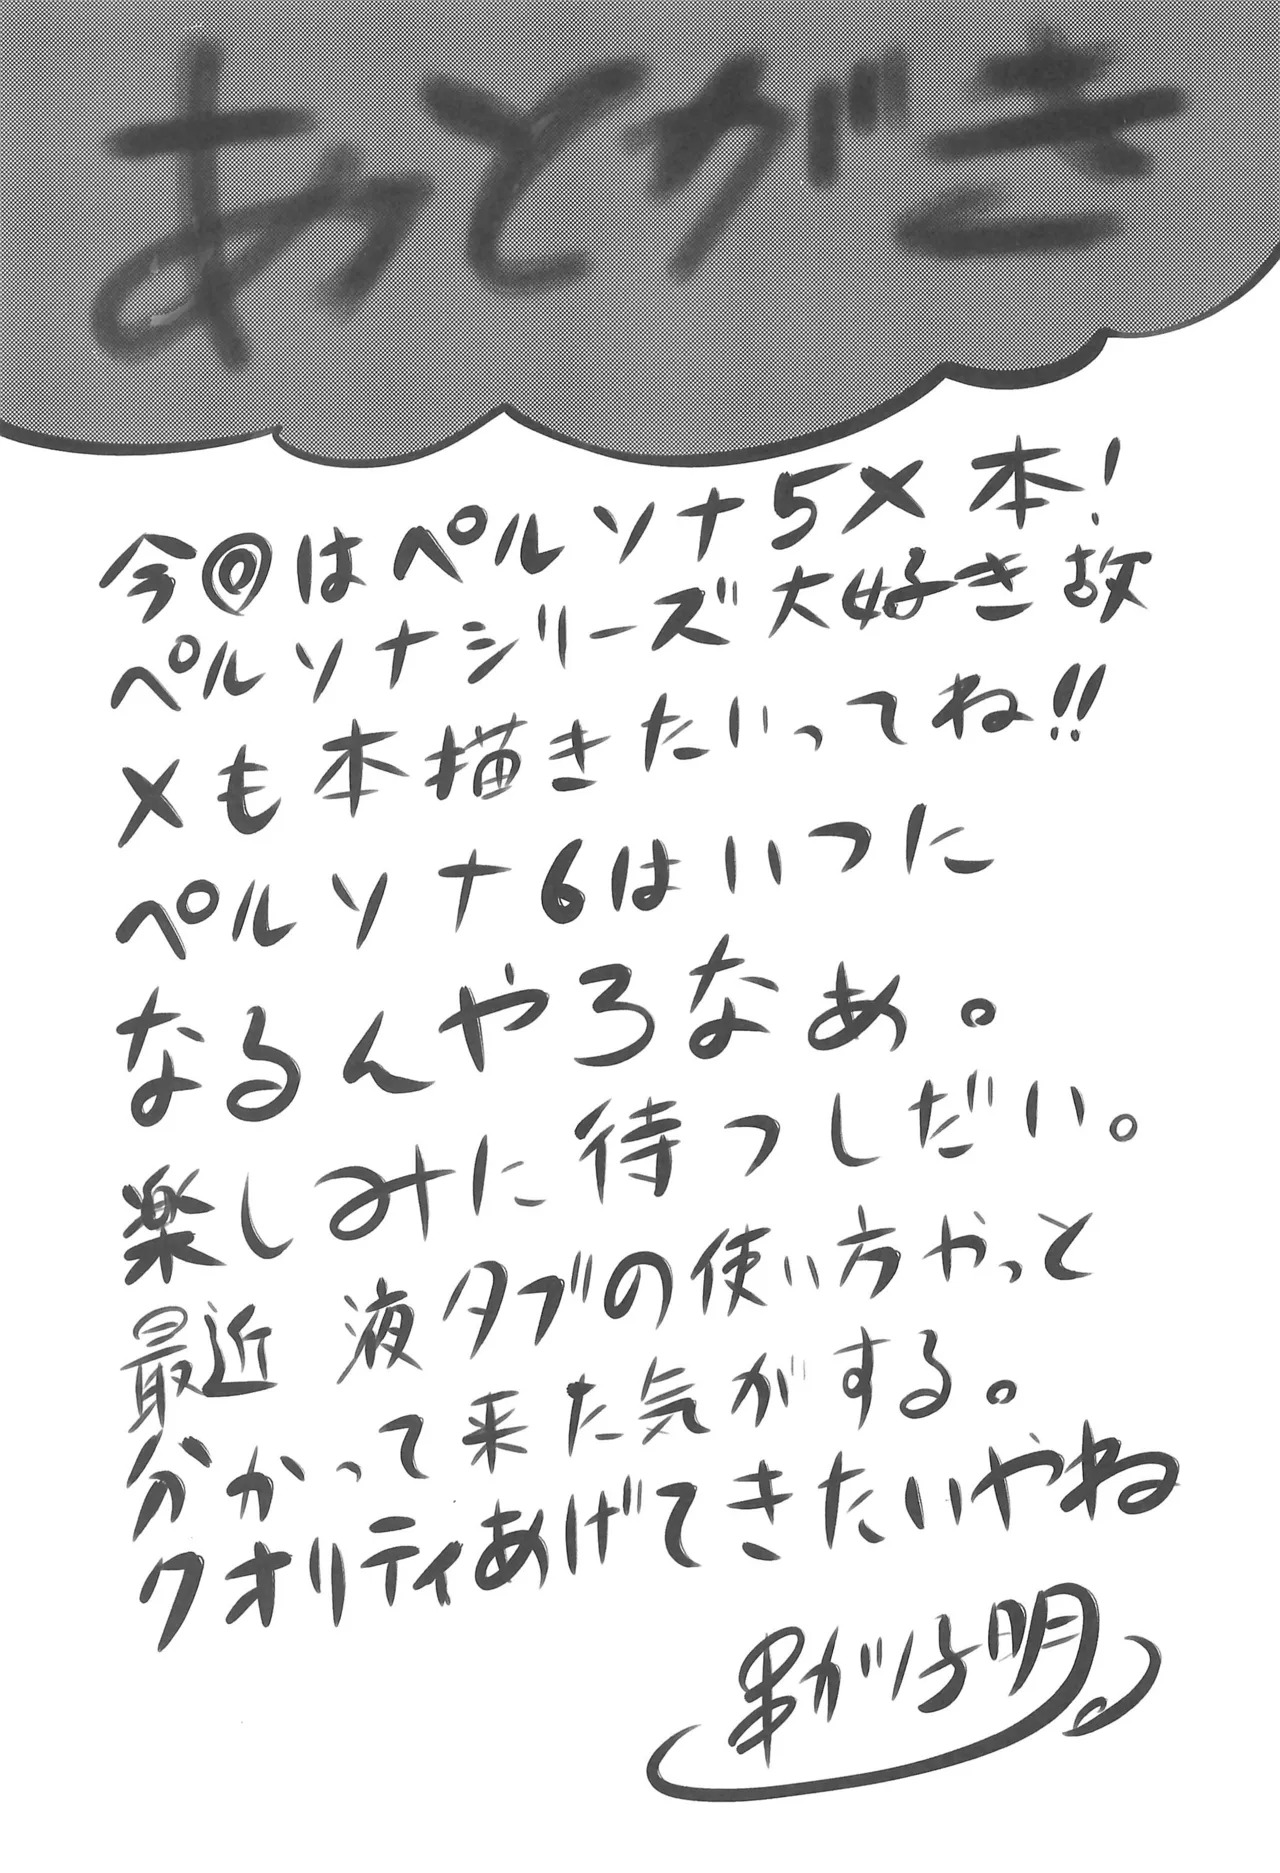 あとがき
今回はペルソナ5X 本!
ペルソナシリーズ大好き故
Xも本描きたいってね!!
ペルソナ6はいつに
なるんやろなぁ。
楽しみに待つしだい。
最近 液タブの使い方やっと
分かって来た気がする。
クオリティあげてきたいやね
串がり子明